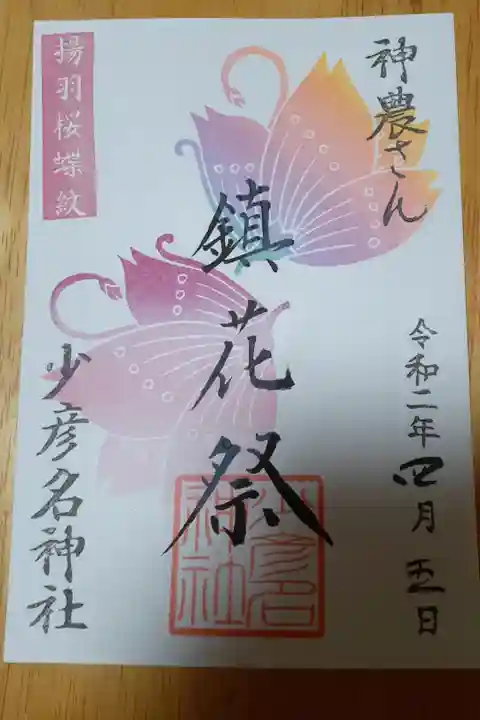 神農さん
令和二年四月五日
鎮花祭
少彦名神社
揚羽桜蝶紋
少彦名
神社